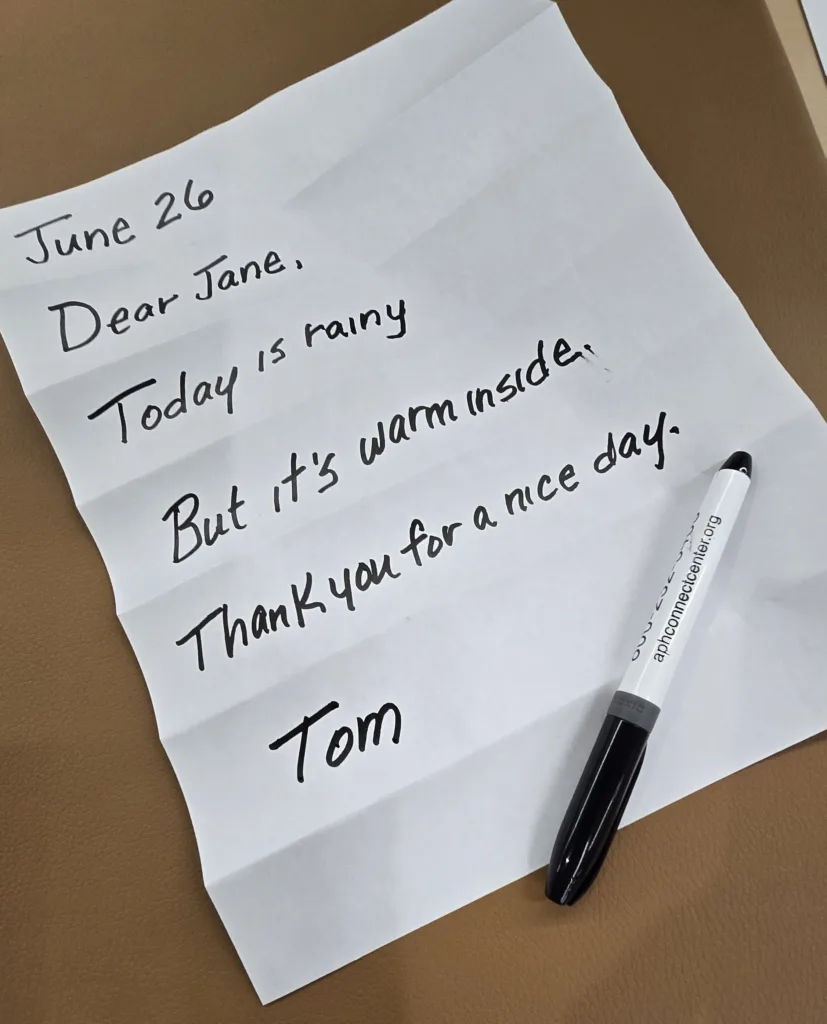 June 26
Dear Jane,
Today is rainy
But it's warm inside.
Thank you for a nice day.
Tom
aphconnectcenter.org